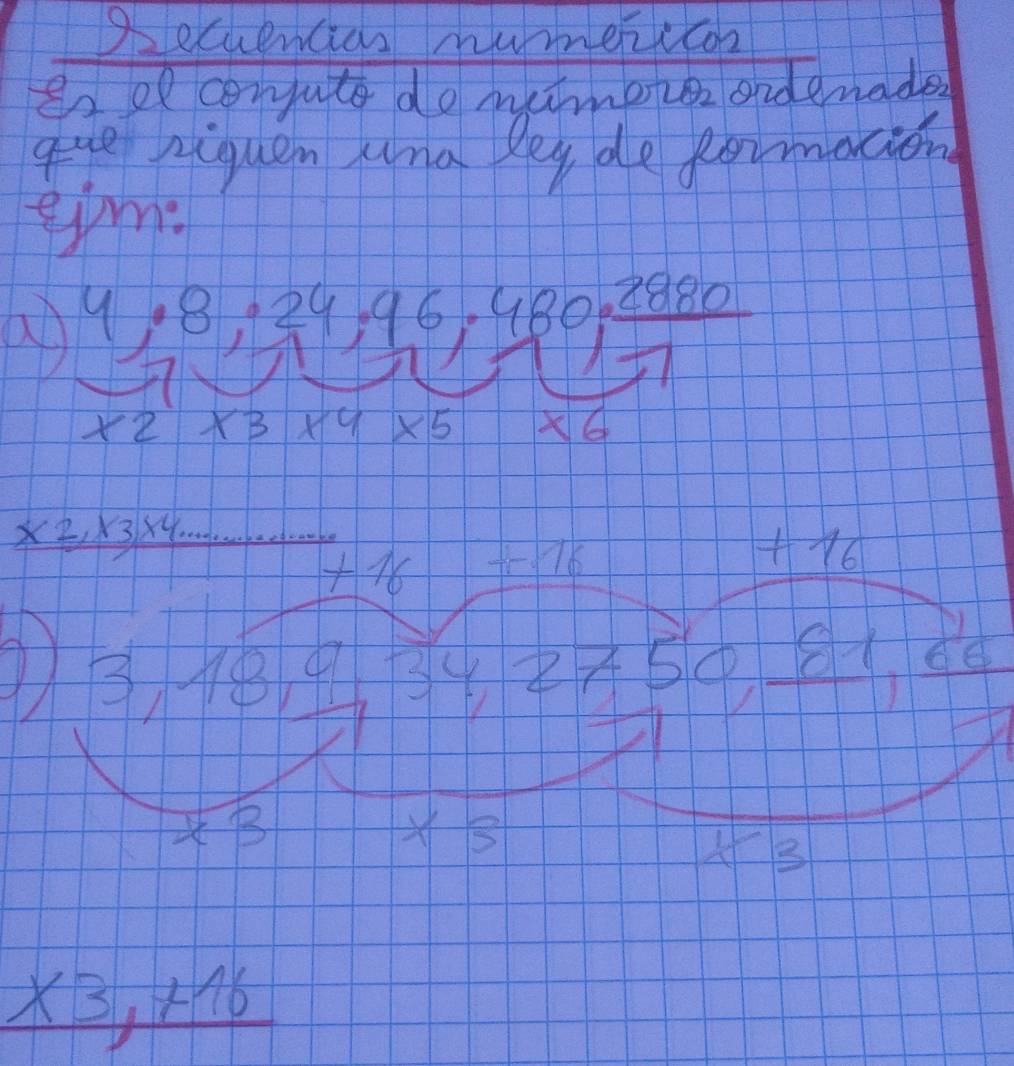 Secuencias numéricas
Es el conjuto de números ordenados
que siguen una ley de formación
ejm:
a) 4 ; 8 ; 24 ; 96 ; 480 ; 2880
x2 x3 x4 x5 x6
x2, x3, x4...............
+16 +16 +16
b) 3, 18, 9, 34, 27, 50, 81, 66
x3 x3 x3
x3, +16